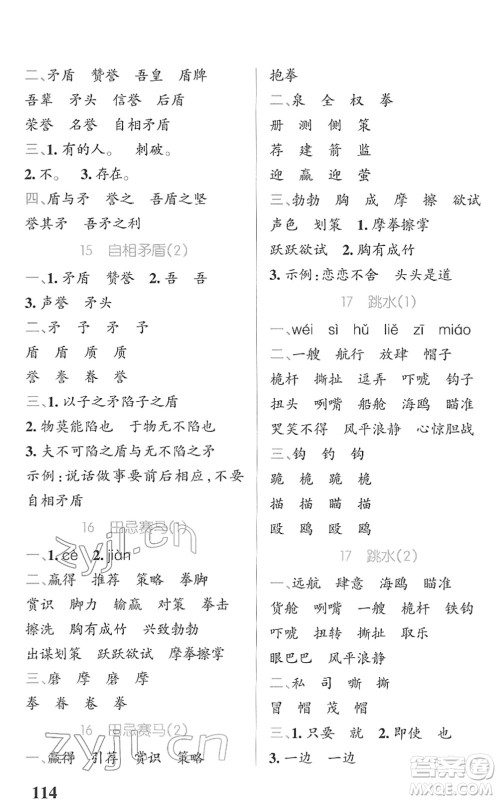 二、矛盾 赞誉 吾皇 盾牌
吾辈 矛头 信誉 后盾
荣誉 名誉 自相矛盾
三、1. 有的人。 刺破。
2. 不。 3. 存在。
四、盾与矛 誉之 吾盾之坚
誉其矛 吾矛之利
15 自相矛盾(2)
一、1. 矛盾 赞誉 2. 吾 吾
3. 声誉 矛头
二、矛 予 矛 予
盾 质 盾 质
誉 誊 眷 誉
三、1. 以子之矛陷子之盾
2. 物莫能陷也 于物无不陷也
3. 夫不可陷之盾与无不陷之矛
示例:说话做事要前后相应,不要
自相矛盾
16 田忌赛马(1)
一、1. cè 2. jiàn
二、赢得 推荐 策略 拳脚
赏识 脚力 输赢 对策 拳击
擦洗 胸有成竹 兴致勃勃
出谋划策 跃跃欲试 摩拳擦掌
三、磨 摩 磨 摩
拳 眷 眷 拳
16 田忌赛马(2)
一、赢得 引荐 赏识 策略
114
抱拳
二、泉 全 权 拳
册 测 侧 策
荐 建 箭 监
迎 赢 萤 营
三、勃勃 胸 成 摩 擦 欲试
声色 划策 1. 摩拳擦掌
跃跃欲试 2. 胸有成竹
3. 示例:恋恋不舍 头头是道
17 跳水(1)
一、wéi sì hǔ liě zī miáo
二、一艘 航行 放肆 帽子
桅杆 撕扯 逗弄 吓唬 钩子
扭头 咧嘴 船舱 海鸥 瞄准
哭笑不得 风平浪静 心惊胆战
三、钩 钓 钓 钩
跪 桅 桅 跪
描 描 瞄 瞄
殴 鸥 鸥 殴
17 跳水(2)
一、远航 肆意 海鸥 瞄准
货舱 咧嘴 一艘 桅杆 铁钩
吓唬 扭转 撕扯 帽子 取乐
眼巴巴 风平浪静
二、私 司 嘶 撕
冒 帽 茂 帽
三、1. 只要 就 2. 即使 也
3. 一边 一边
zyjl.cn
zyjl.cn
答案圈
MXQE.COM